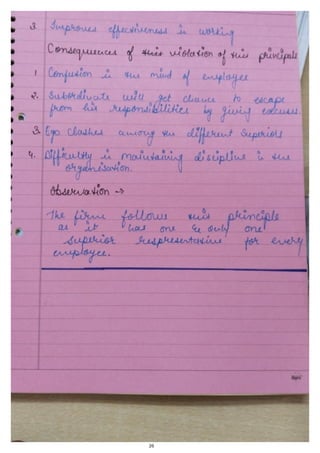 3. Improves effectiveness in working
Consequences of this violation of this principals
1 Confusion in the mind of employee
2. Subordinate will get chance to escape
from his responsibilities by giving excuses.
3. Ego clashes among the different Superiors
4. Difficultty in maintaining discipline in the
organisation.
Observation →
The firm follows this principle
as it has one & only one
superior respresentative for every
employee.
26